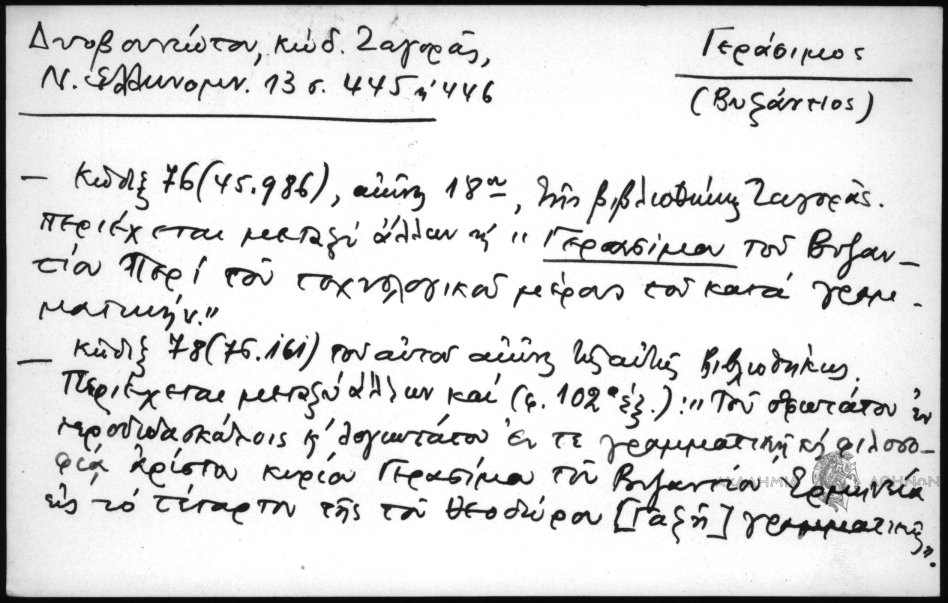 Δυοβουνιώτου, κώδ. Ζαγοράς,
Ν. Ελληνομν. 13 σ. 445 κ' 446
Γεράσιμος
(Βυζάντιος)
— Κώδιξ 76 (45.986), αιώνος 18ου, της βιβλιοθήκης Ζαγοράς.
Περιέχεται μεταξύ άλλων κ' "Γερασίμου του Βυζαν-
τίου Περί του τεχνολογικού μέρους του κατά γραμ-
ματικήν."
— Κώδιξ 78 (76.161) του αυτού αιώνος της αυτής Βιβλιοθήκης.
Περιέχεται μεταξύ άλλων και (φ. 102α εξ.): "Του σοφωτάτου εν
ιεροδιδασκάλοις κ' λογιωτάτου έν τε γραμματική κ' φιλοσο-
φία αρίστου κυρίου Γερασίμου του Βυζαντίου Ερμηνεία
εις το τέταρτον της του Θεοδώρου [Γαζή] γραμματικής".
ΑΚΑΔΗΜΙΑ ΑΘΗΝΩΝ